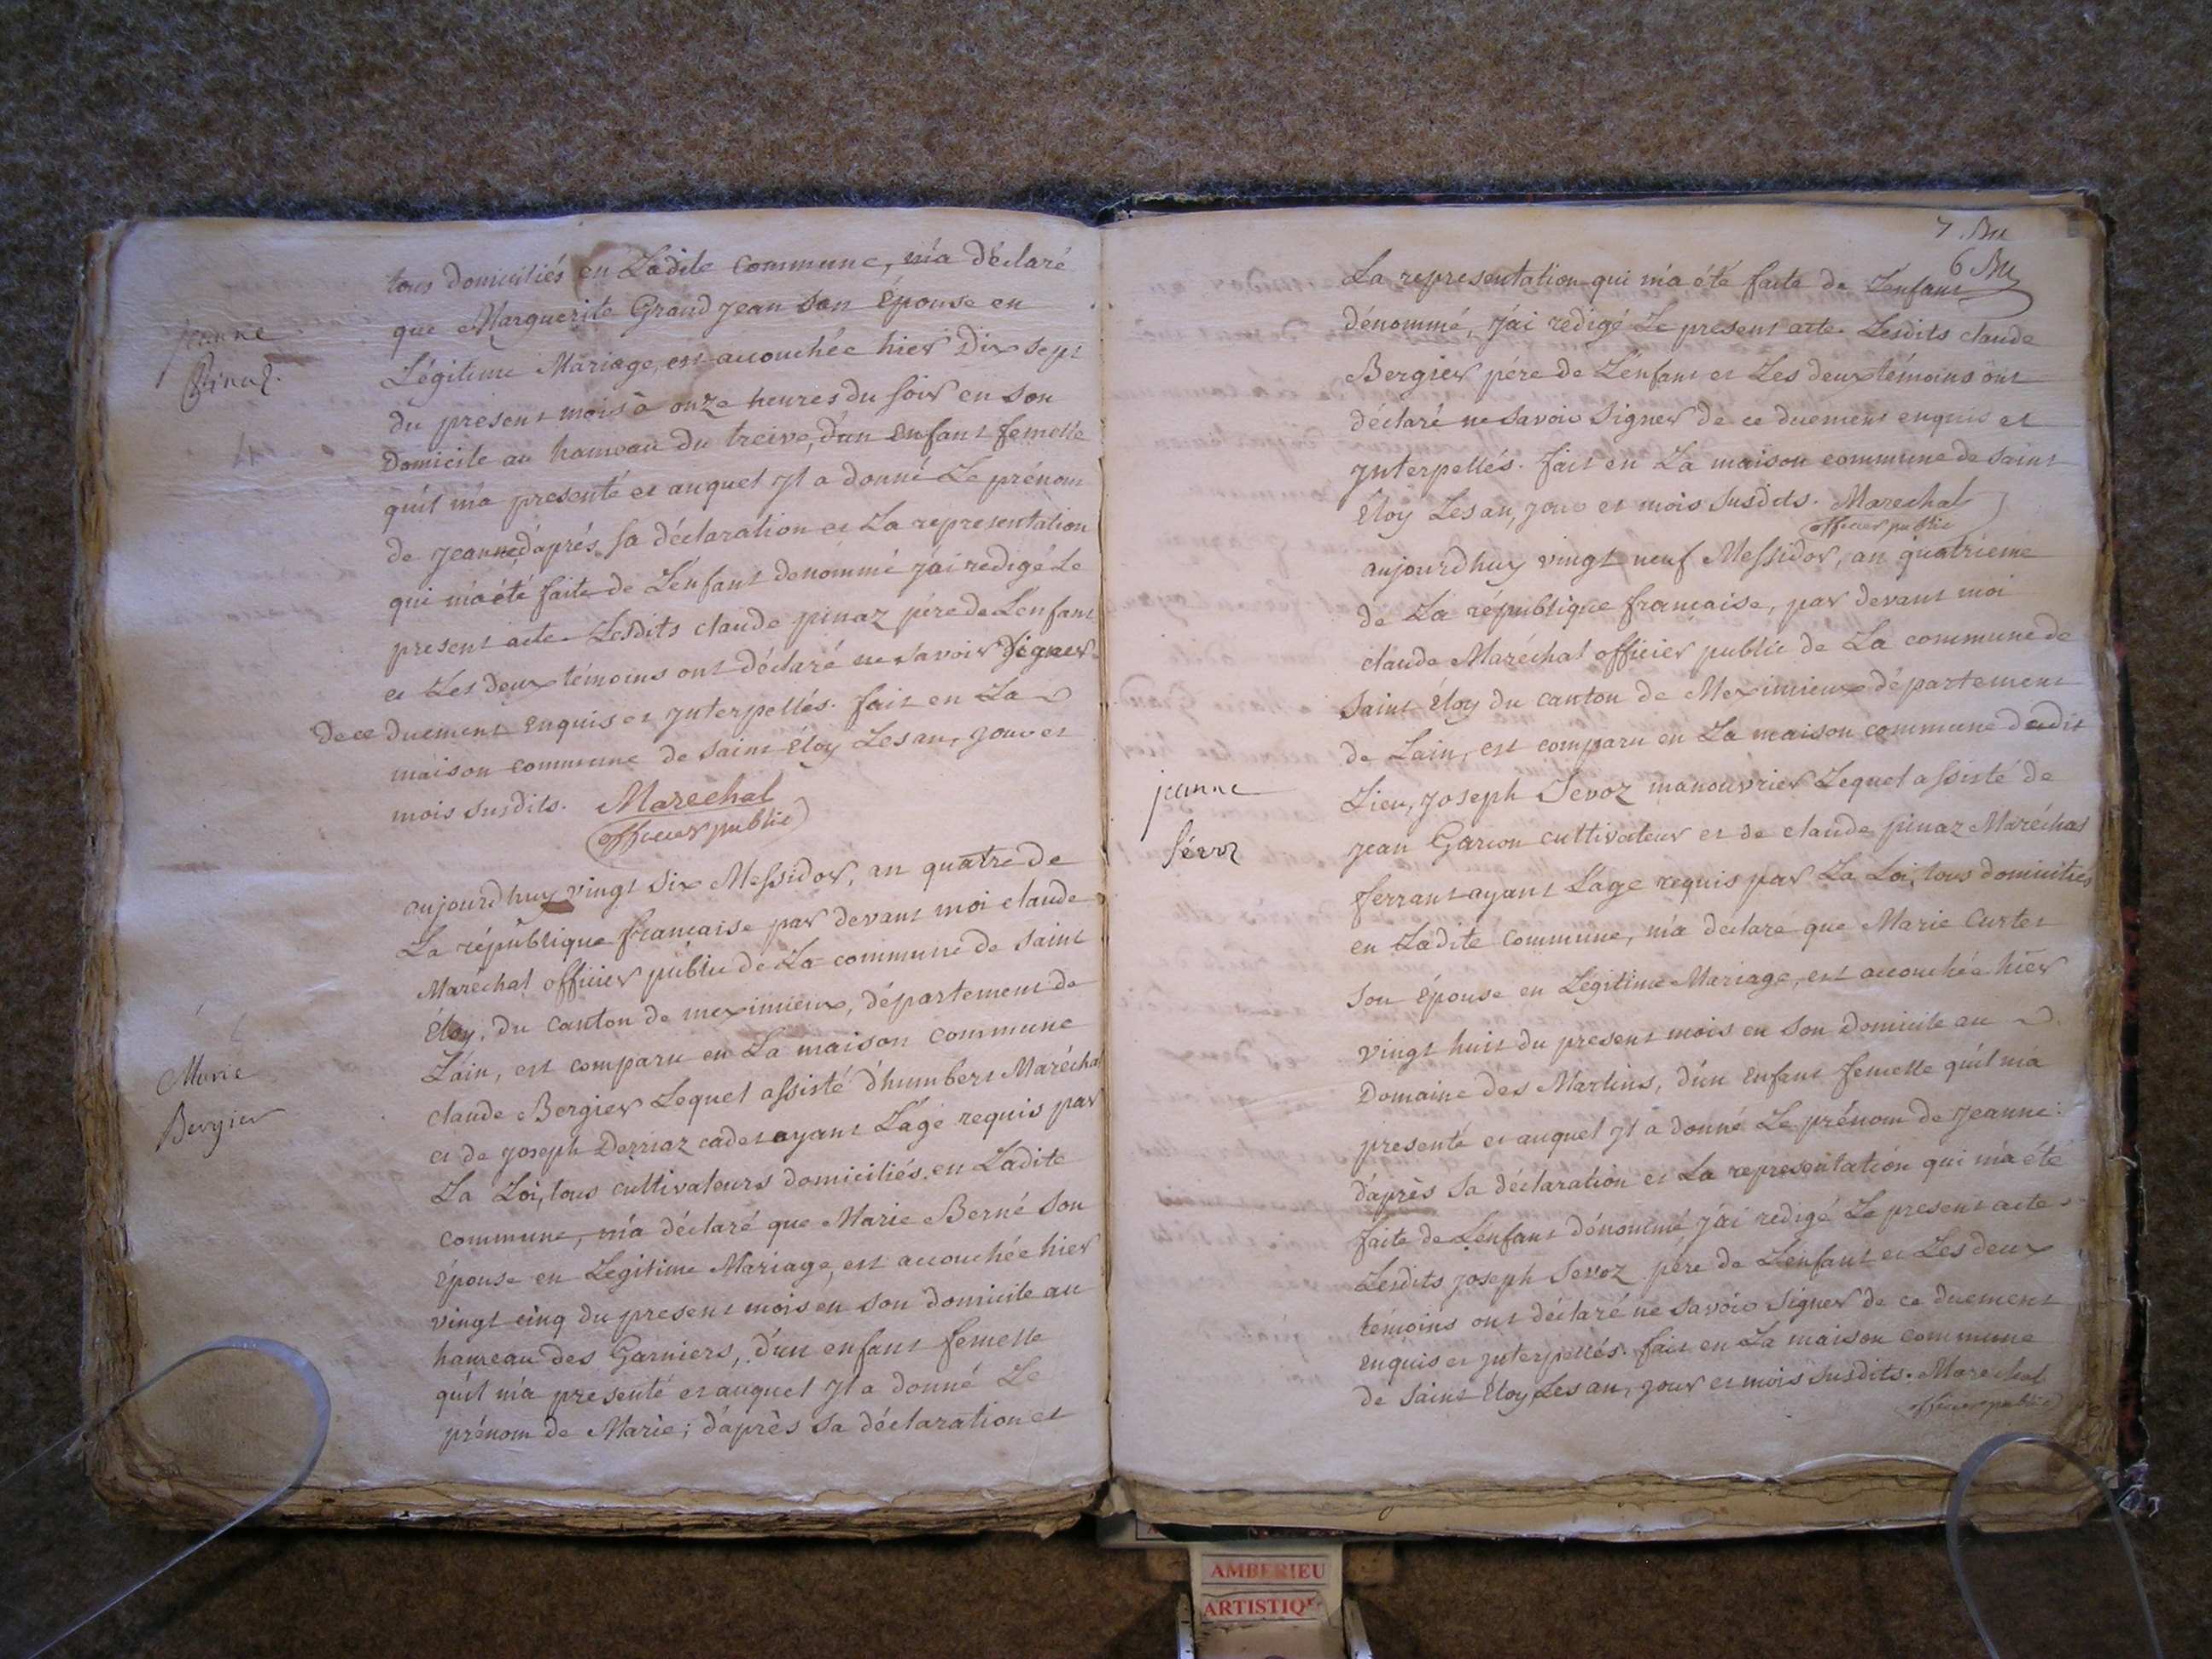 tous domiciliés en Ladite commune, m'a déclaré
que Marguerite Grand jean son Épouse en
Légitime Mariage, est accouchée hier Dix sept
du present mois à onze heures du soir en son
Domicile au hameau du treive, d'un enfant femelle
qu'il m'a presenté et auquel Jl a donné Le prénom
de jeanne, d'aprés sa déclaration et La representation
qui m'a été faite de L'enfant denommé j'ai redigé Le
present acte Lesdits claude pinaz pére de L'enfant
et Les deux témoins ont déclaré ne savoir signer
de ce duement enquis et jnterpellés. fait en La
maison commune de saint Éloy Les an, jour et
mois susdits. Marechal
officier public
jeanne
pinaz.
4
aujourd'huy vingt six Messidor, an quatre de
La république francaise par devant moi claude
Maréchal officier public de La commune de saint
Éloy, du canton de meximieux, département de
L'ain, est comparu en La maison commune
claude Bergier Lequel assisté d'humbert Maréchal
et de joseph Derriaz cadet ayant L'age requis par
La Loi, tous cultivateurs domiciliés en Ladite
commune, m'a déclaré que Marie Berné son
épouse en Legitime Mariage, est accouchée hier
vingt cinq du present mois en son domicile au
hameau des Garniers, d'un enfant femelle
qu'il m'a presenté et auquel Jl a donné Le
prénom de Marie; d'après sa déclaration et
Marie
Bergier
7. Bu
6 Bu
La representation qui m'a été faite de L'enfant
dénommé, j'ai redigé Le present acte Lesdits claude
Bergier pére de L'enfant et Les deux témoins ont
déclaré ne savoir signer de ce duement enquis et
jnterpellés. fait en La maison commune de saint
Éloy Les an, jour et mois susdits. Marechal
officier public
aujourdhuy vingt neuf Messidor, an quatrieme
de La république francaise, par devant moi
claude Maréchal officier public de La commune de
saint Éloy du canton de Meximieux département
de Lain, est comparu en La maison commune dudit
Lieu, joseph Sevoz manouvrier Lequel assisté de
jean Garson cultivateur et de claude pinaz Maréchal
ferrant ayant L'age requis par La Loi, tous domiciliés
en Ladite commune, m'a déclaré que Marie Curtet
son épouse en Légitime Mariage, est accouchée hier
vingt huit du present mois en son domicile au
Domaine des Martins, d'un enfant femelle qu'il m'a
presenté et auquel jl a donné Le prénom de jeanne:
d'après sa déclaration et La representation qui m'a été
faite de L'enfant dénommé j'ai redigé Le present acte
Lesdits joseph Sevoz pére de L'enfant et Les deux
témoins ont déclaré ne savoir signer de ce duement
enquis et jnterpellés. fait en La maison commune
de saint Éloy Les an, jour et mois susdits. Marechal
officier public
jeanne
sévoz
AMBERIEU
ARTISTIQ